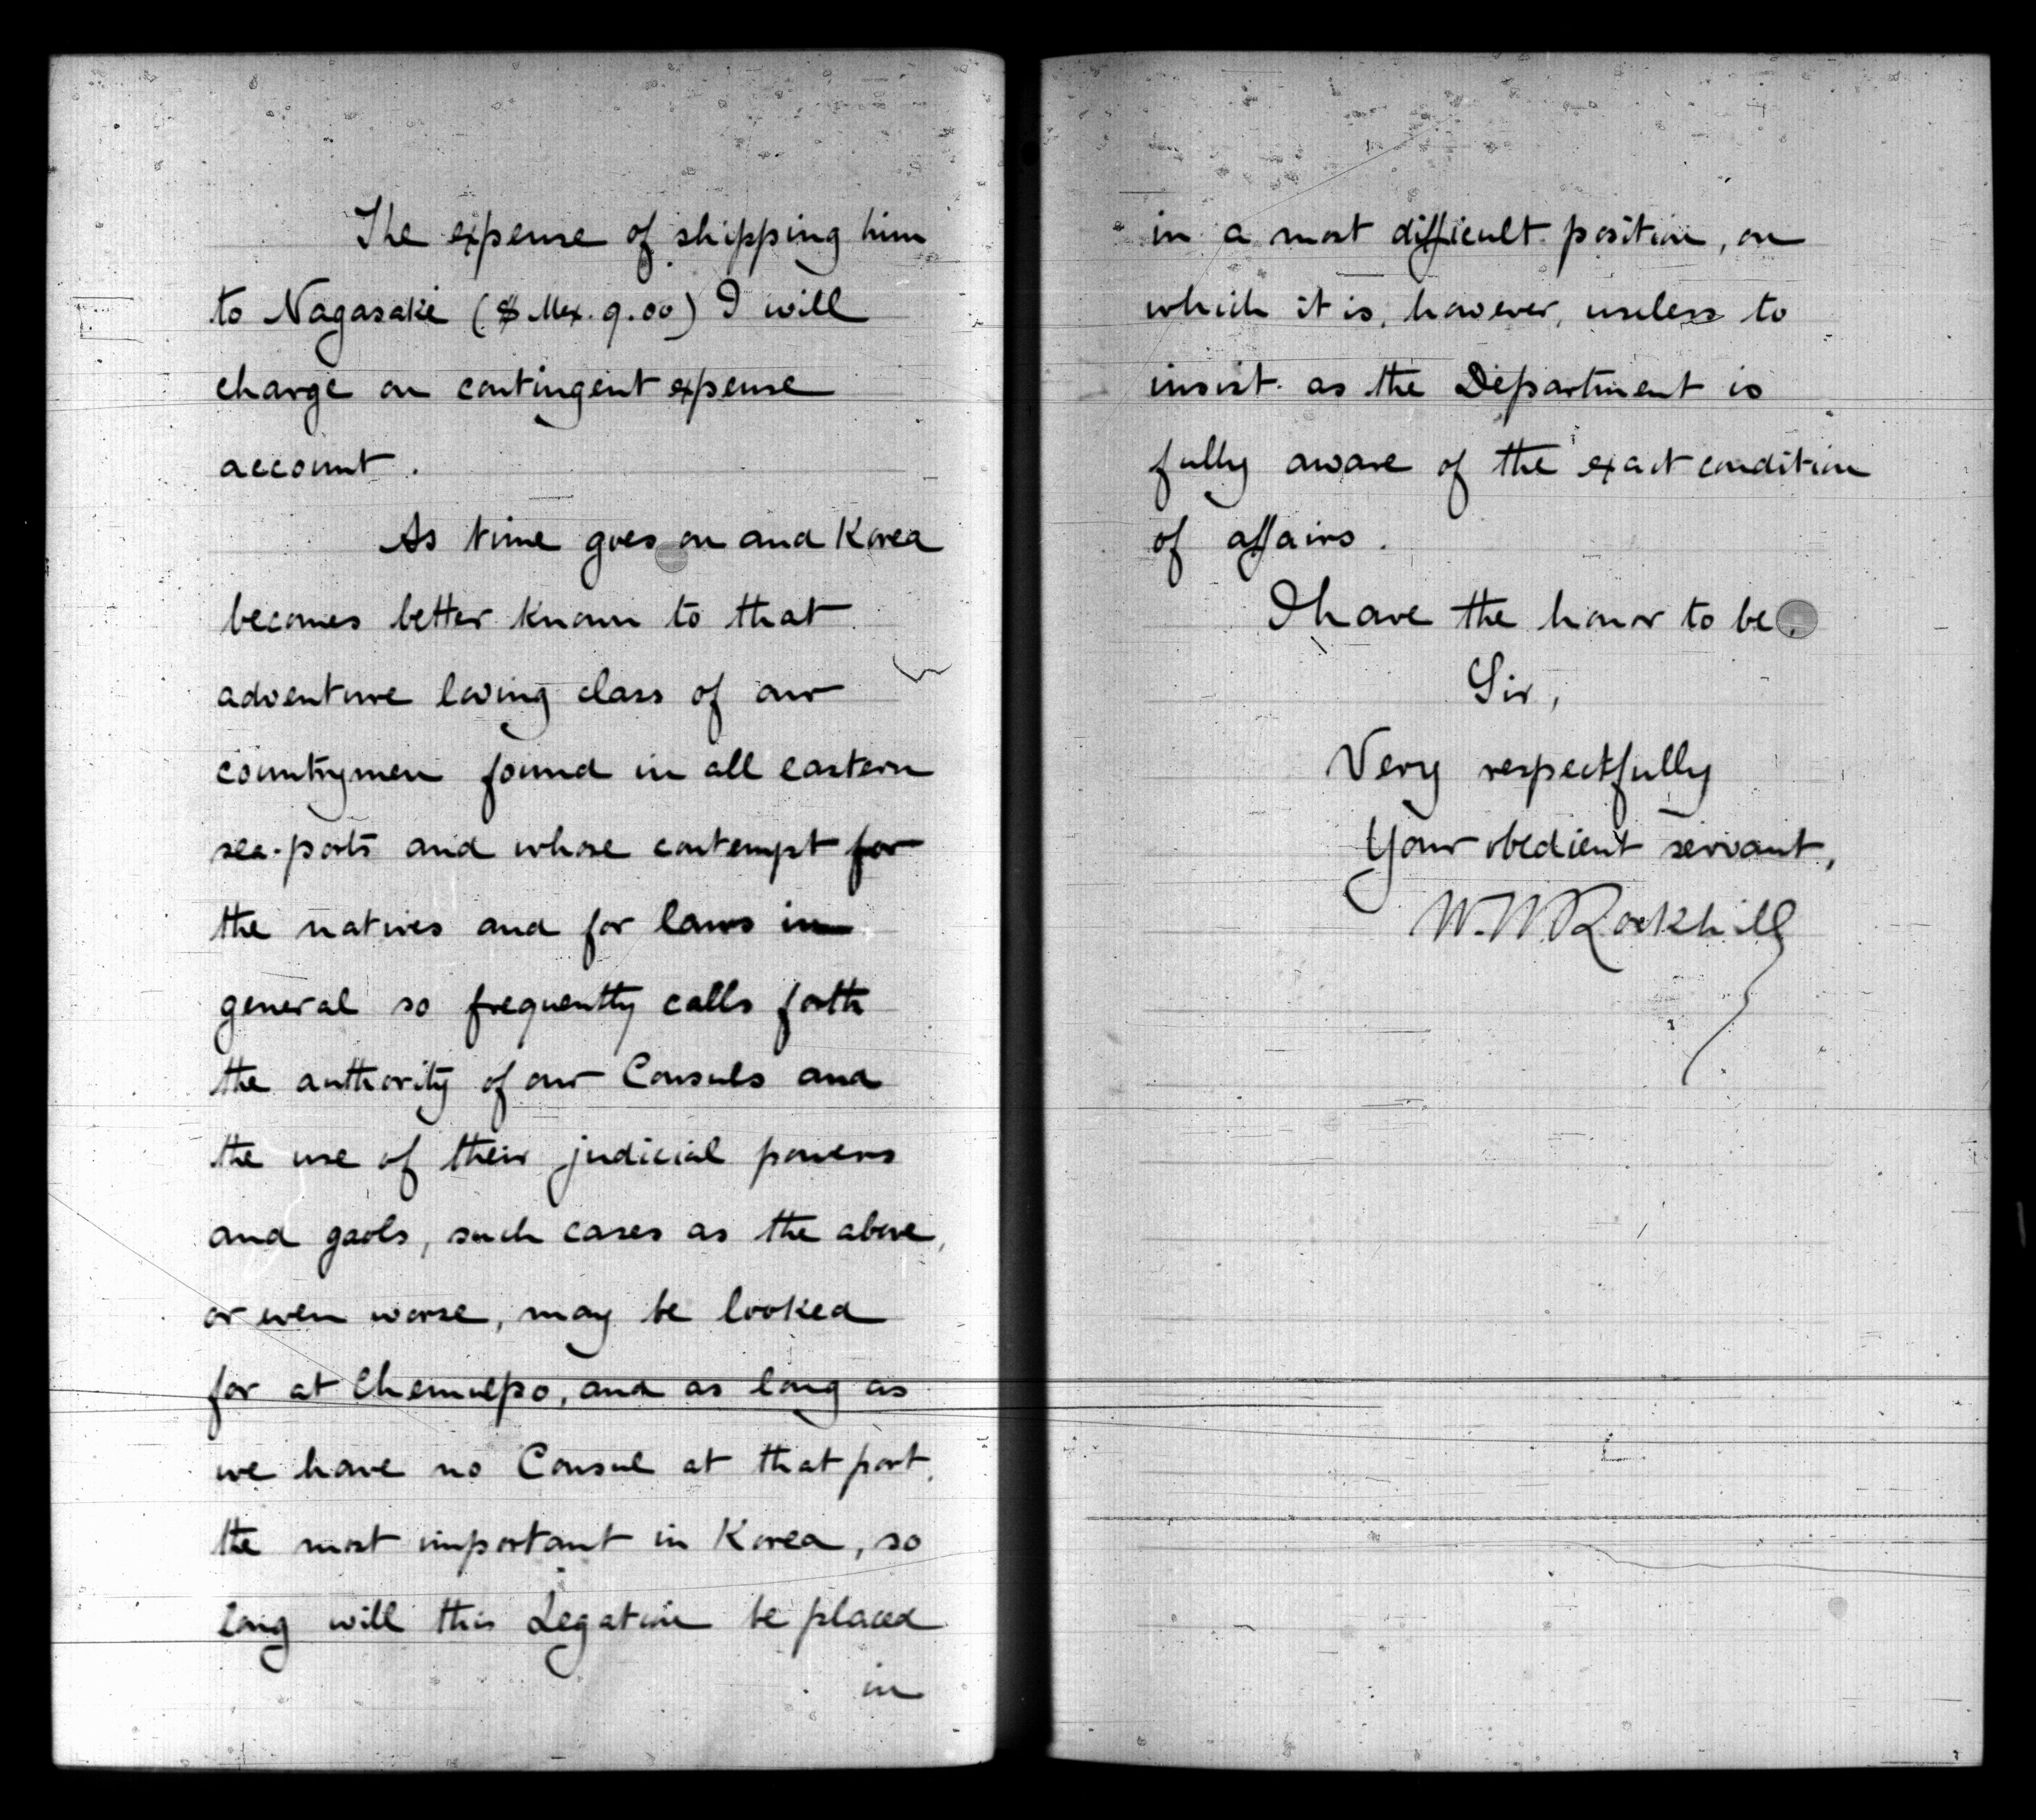 The expense of shipping him
to Nagasaki ($ Mex. 9.00) I will
charge on contingent expense
account.
As time goes on and Korea
becomes better known to that
adventure loving class of our
countrymen found in all eastern
sea-ports and whose contempt for
the natives and for laws in
general so frequently calls forth
the authority of our Consuls and
the use of their judicial powers
and gaols, such cases as the above,
or even worse, may be looked
for at Chemulpo, and as long as
we have no Consul at that port,
the most important in Korea, so
long will this Legation be placed
in
in a most difficult position, on
which it is, however, useless to
insist as the Department is
fully aware of the exact condition
of affairs.
I have the honor to be,
Sir,
Very respectfully
Your obedient servant,
W. W. Rockhill